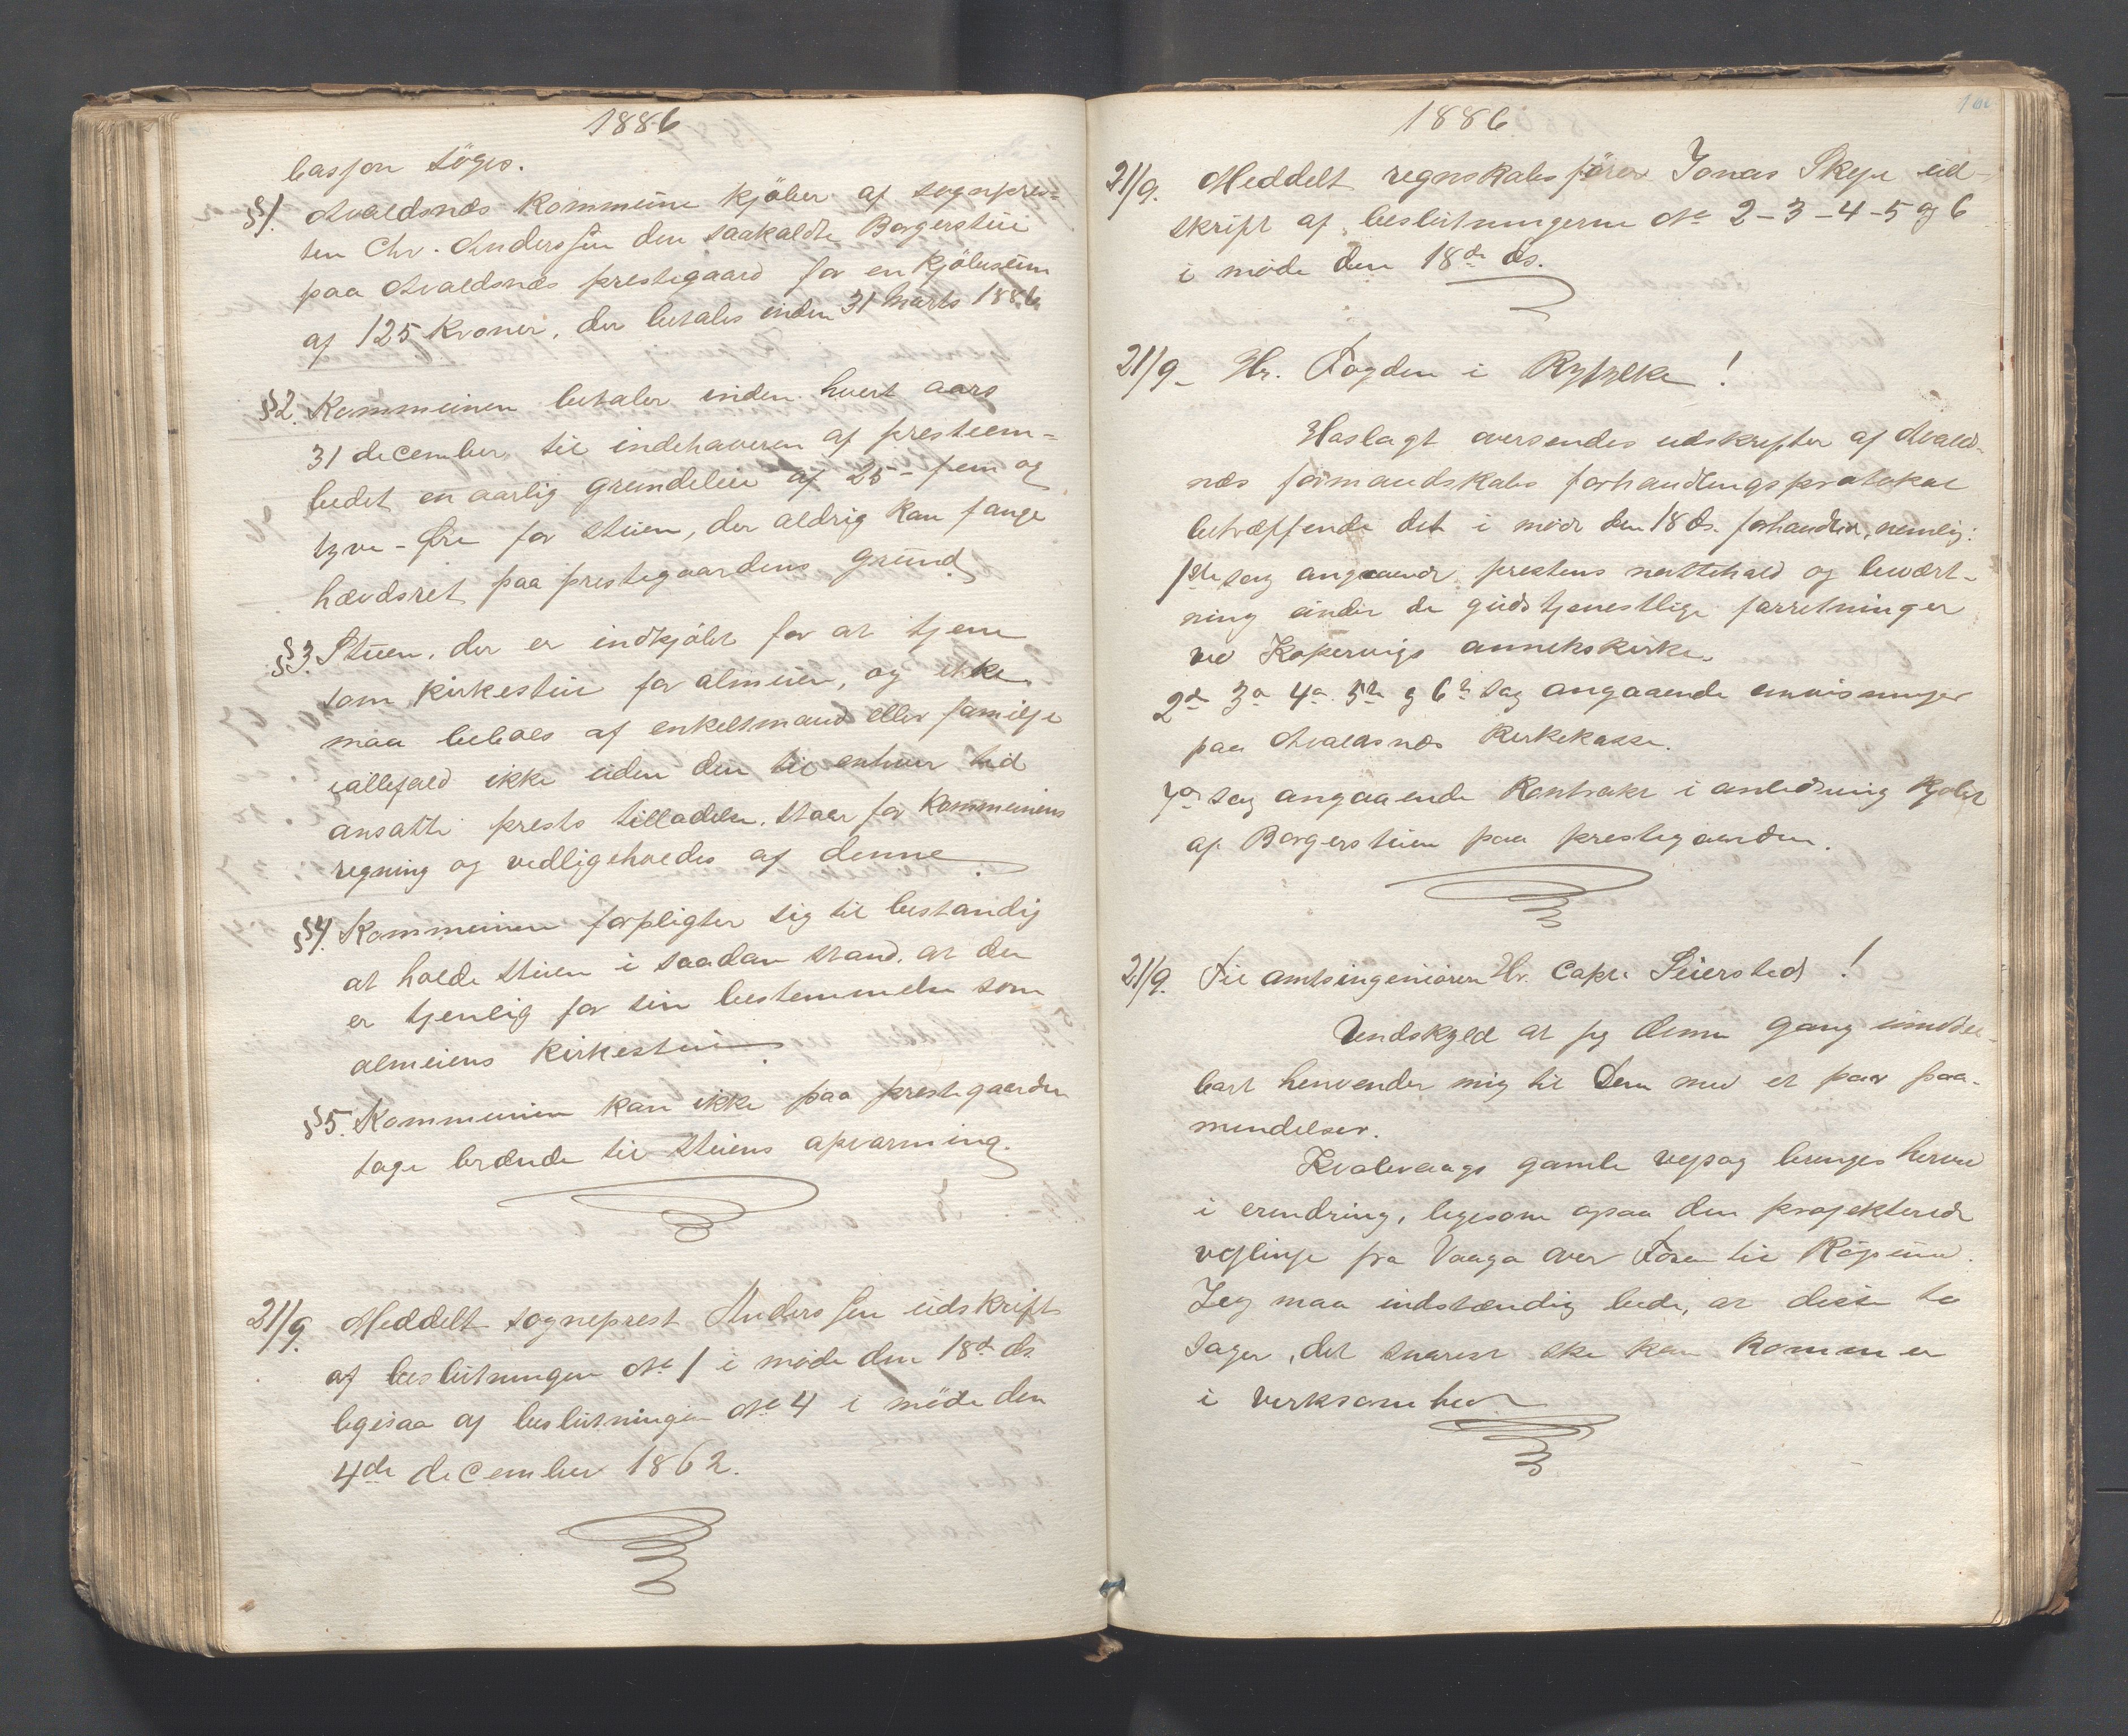 1886
basjon söges.
§1. Avaldsnæs kommune kjöber af sognepres-
ten Chr. Anderssen den saakaldte Borgerstue
paa Avaldsnæs prestegaard for en kjöbesum
af 125 kroner, der betales inden 31 Marts 1886
§2. Kommunen betaler inden hvert aars
31 december til indehaveren af presteem-
bedet en aarlig grundleie af 25 - fem og
tyve - Øre for stuen, der aldrig kan fange
hævdsret paa prestegaardens grund
§3. Stuen, der er indkjöbt for at tjene
som kirkestue for almuen, og ikke
maa beboes af enkeltmand eller familje
iallefald ikke uden den til enhver tid
ansatte prests tilladelse. staar for kommunens
regning og vedligeholdes af denne.
§4. Kommunen forpligter sig til bestandig
at holde stuen i saadan stand, at den
er tjenlig for sin bestemmelse som
almuens kirkestue.
§5. Kommunen kan ikke paa prestegaarden
tage brænde til stuens opvarming.
21/9. Meddelt sogneprest Anderssen udskrift
af beslutningen № 1 i møde den 18de ds.
ligesaa af beslutningen № 4 i møde den
4de december 1862.
1886
21/9. Meddelt regnskabsfører Jonas Skeje ud-
skrift af beslutningerne № 2-3-4-5 og 6
i møde den 18de ds.
21/9- Hr. Fogden i Ryfylke!
Hoslagt oversendes udskrifter af Avalds-
næs formandskabs forhandlingsprotokol
betræffende det i møde den 18 ds. forhandlede, nemlig:
1ste sag angaaende prestens nattehold og bevært-
ning under de gudstjenestlige forretninger
ved Kopervigs annekskirke.
2de 3de 4de 5te og 6te sag angaaende anvisninger
paa Avaldsnæs Kirkekasse.
7de sag angaaende kontrakt i anledning kjøbet
af Borgerstuen paa prestegaarden.
21/9. Til amtsingeniøren Hr. Capt. Seiersted!
Undskyld at jeg denne gang umiddel-
bart henvender mig til Dem med et paar paa-
mindelser.
Kvalevaags gamle vejsag bringes herved
i erindring, ligesom ogsaa den projekterede
vejlinje fra Vaaga over Fosen til
Jeg maa indstændig bede, at disse to
sager, det snarest ske kan kommer
i virksomhed